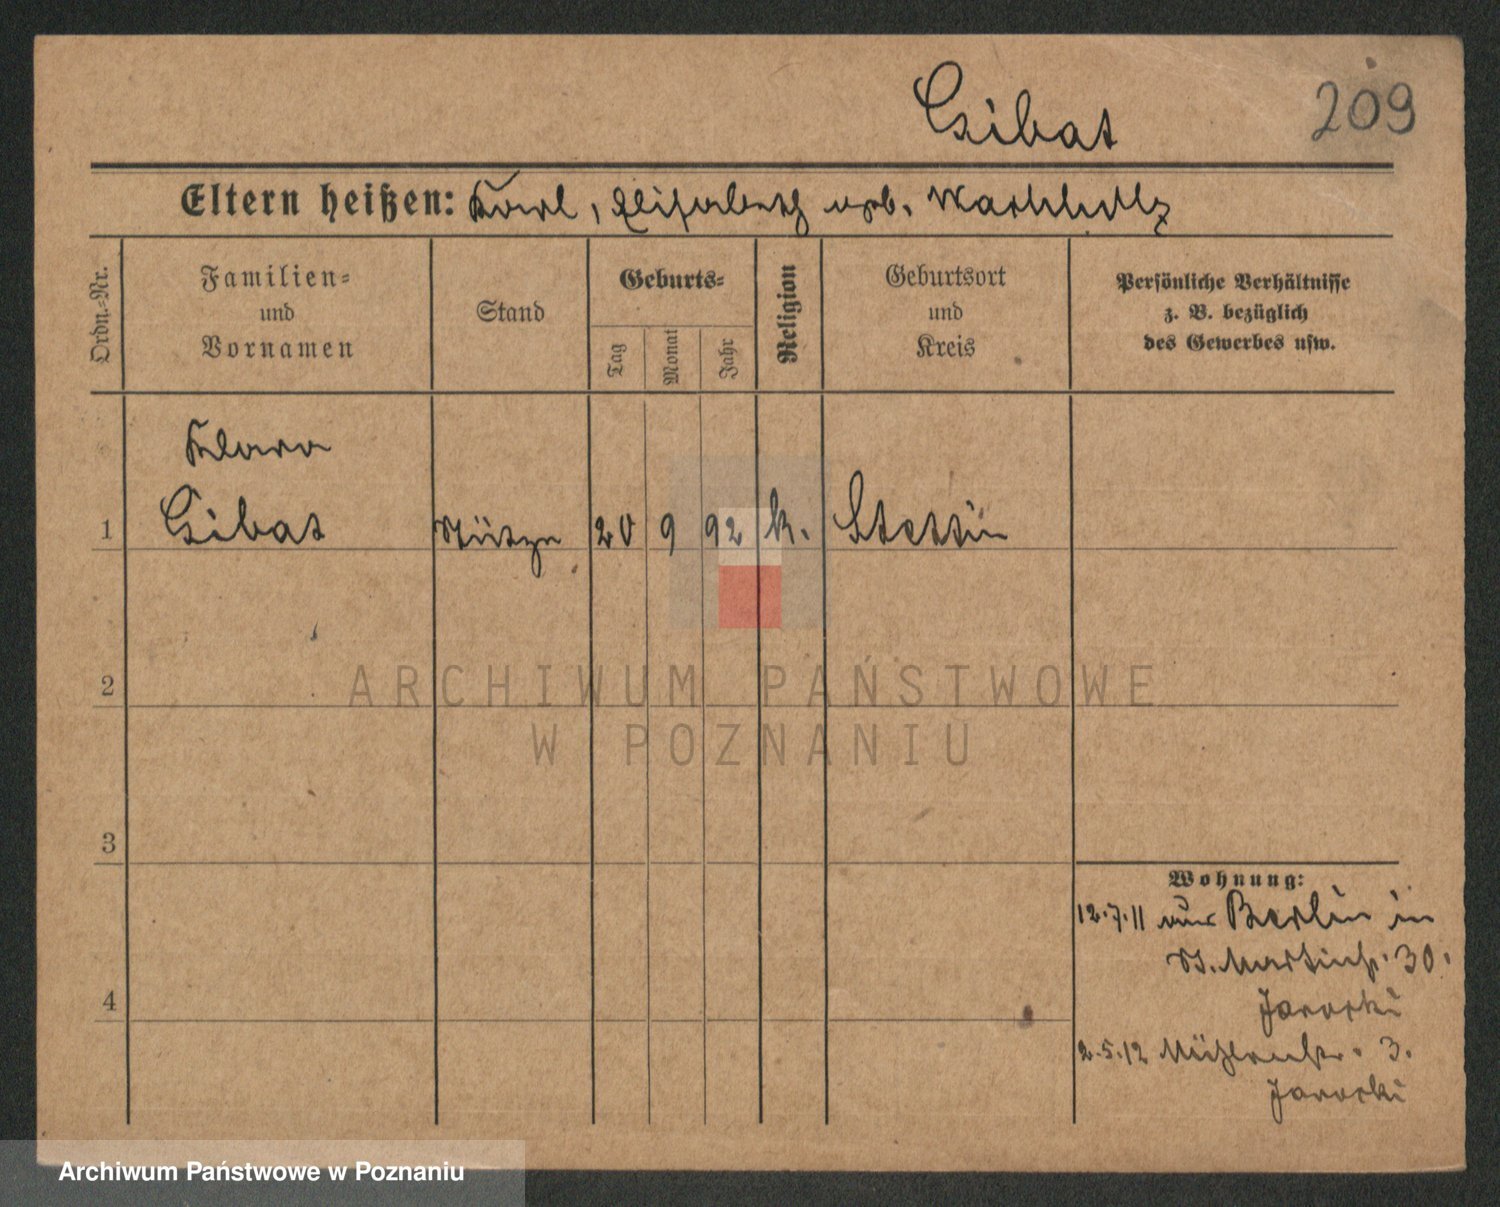 Czibat
209
Eltern heißen: Karl, Elisabeth geb. Wachholz
Ordn.=Nr.
Familien=
und
Vornamen
Stand
Geburts=
Tag
Monat
Jahr
Religion
Geburtsort
und
Kreis
Persönliche Verhältnisse
z. B. bezüglich
des Gewerbes usw.
Klara
1 Czibat Stütze 20 9 92 k. Stettin
2
3
4
Wohnung:
12.7.11 aus Berlin in
St. Martinstr. 30.
2.5.12 Mühlenstr. 3.
ARCHIWUM PAŃSTWOWE
W POZNANIU
Archiwum Państwowe w Poznaniu